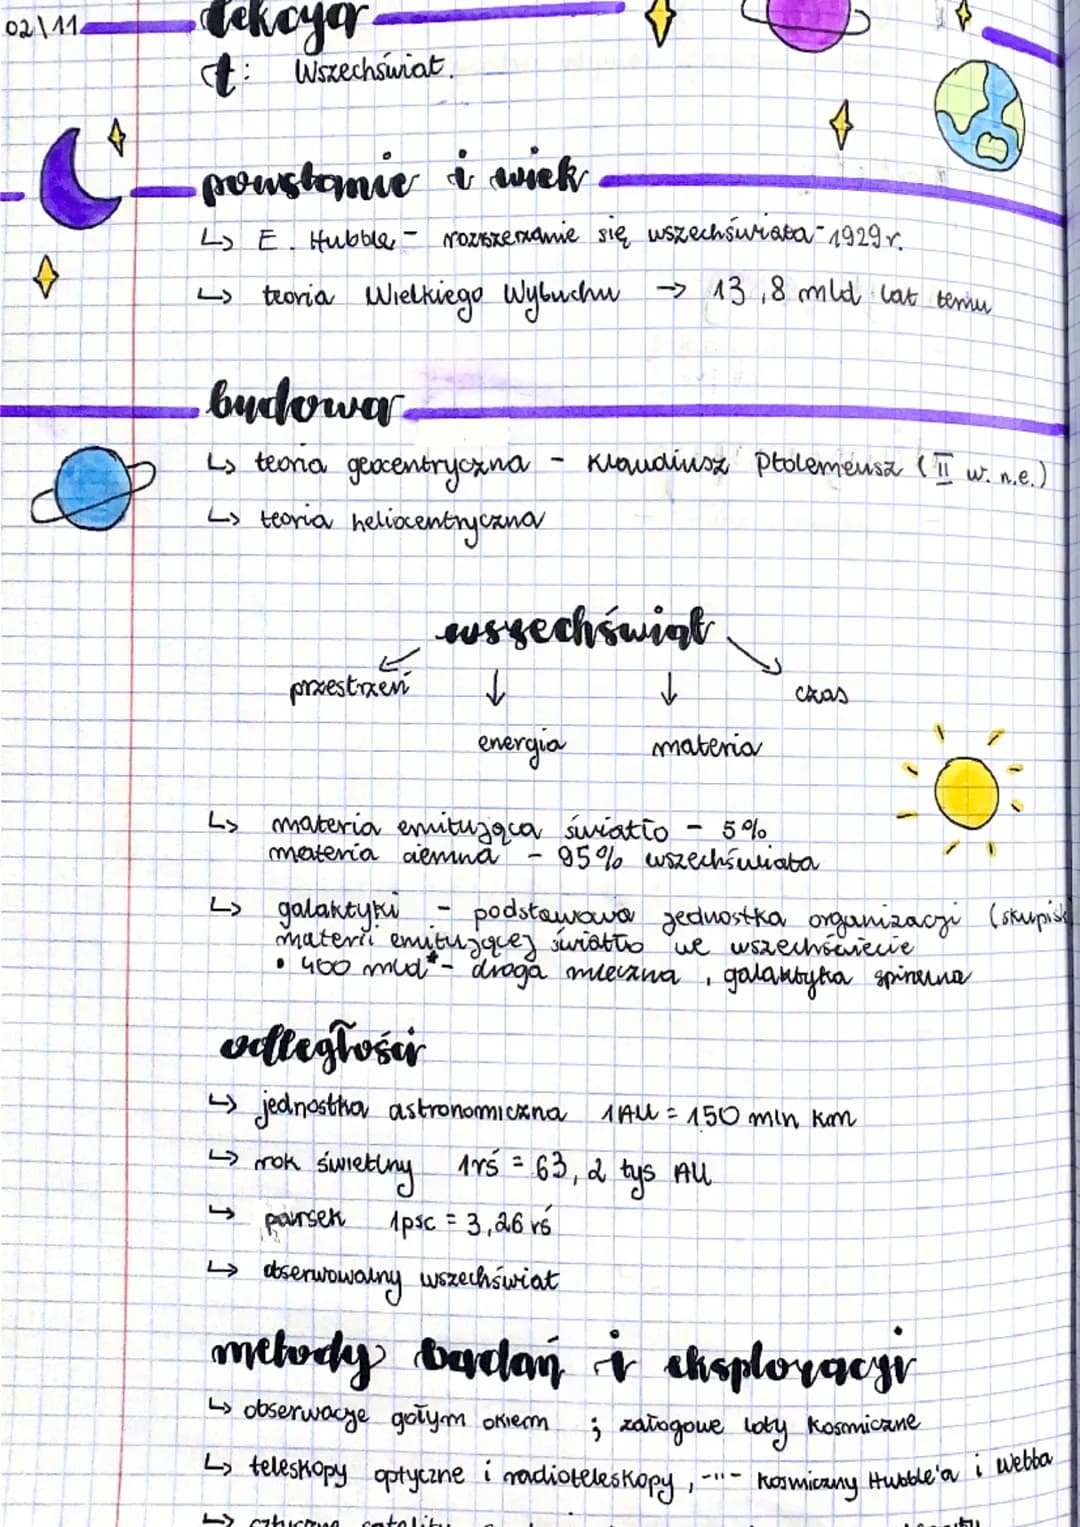 02\11 lekcja
t: Wszechświat.
powstanie i wiek
↳ E. Hubble - rozszerzanie się wszechświata - 1929 r.
↳ teoria Wielkiego Wybuchu → 13,8 mld lat temu
budowa
↳ teoria geocentryczna - Klaudiusz Ptolemeusz (II w. n.e.)
↳ teoria heliocentryczna
wszechświat
przestrzeń ↓ ↓ czas
energia materia
↳ materia emitująca światło - 5%
materia ciemna - 95% wszechświata
↳ galaktyki - podstawowa jednostka organizacji (skupisk
materii emitującej światło we wszechświecie
• 400 mld* - droga mleczna, galaktyka spiralna
odległości
↳ jednostka astronomiczna 1AU = 150 mln km
↳ rok świetlny 1rś = 63,2 tys AU
↳ parsek 1psc = 3,26 rś
↳ obserwowalny wszechświat
metody badań i eksploracji
↳ obserwacje gołym okiem ; załogowe loty kosmiczne
↳ teleskopy optyczne i radioteleskopy, -"- kosmiczny Hubble'a i Webba